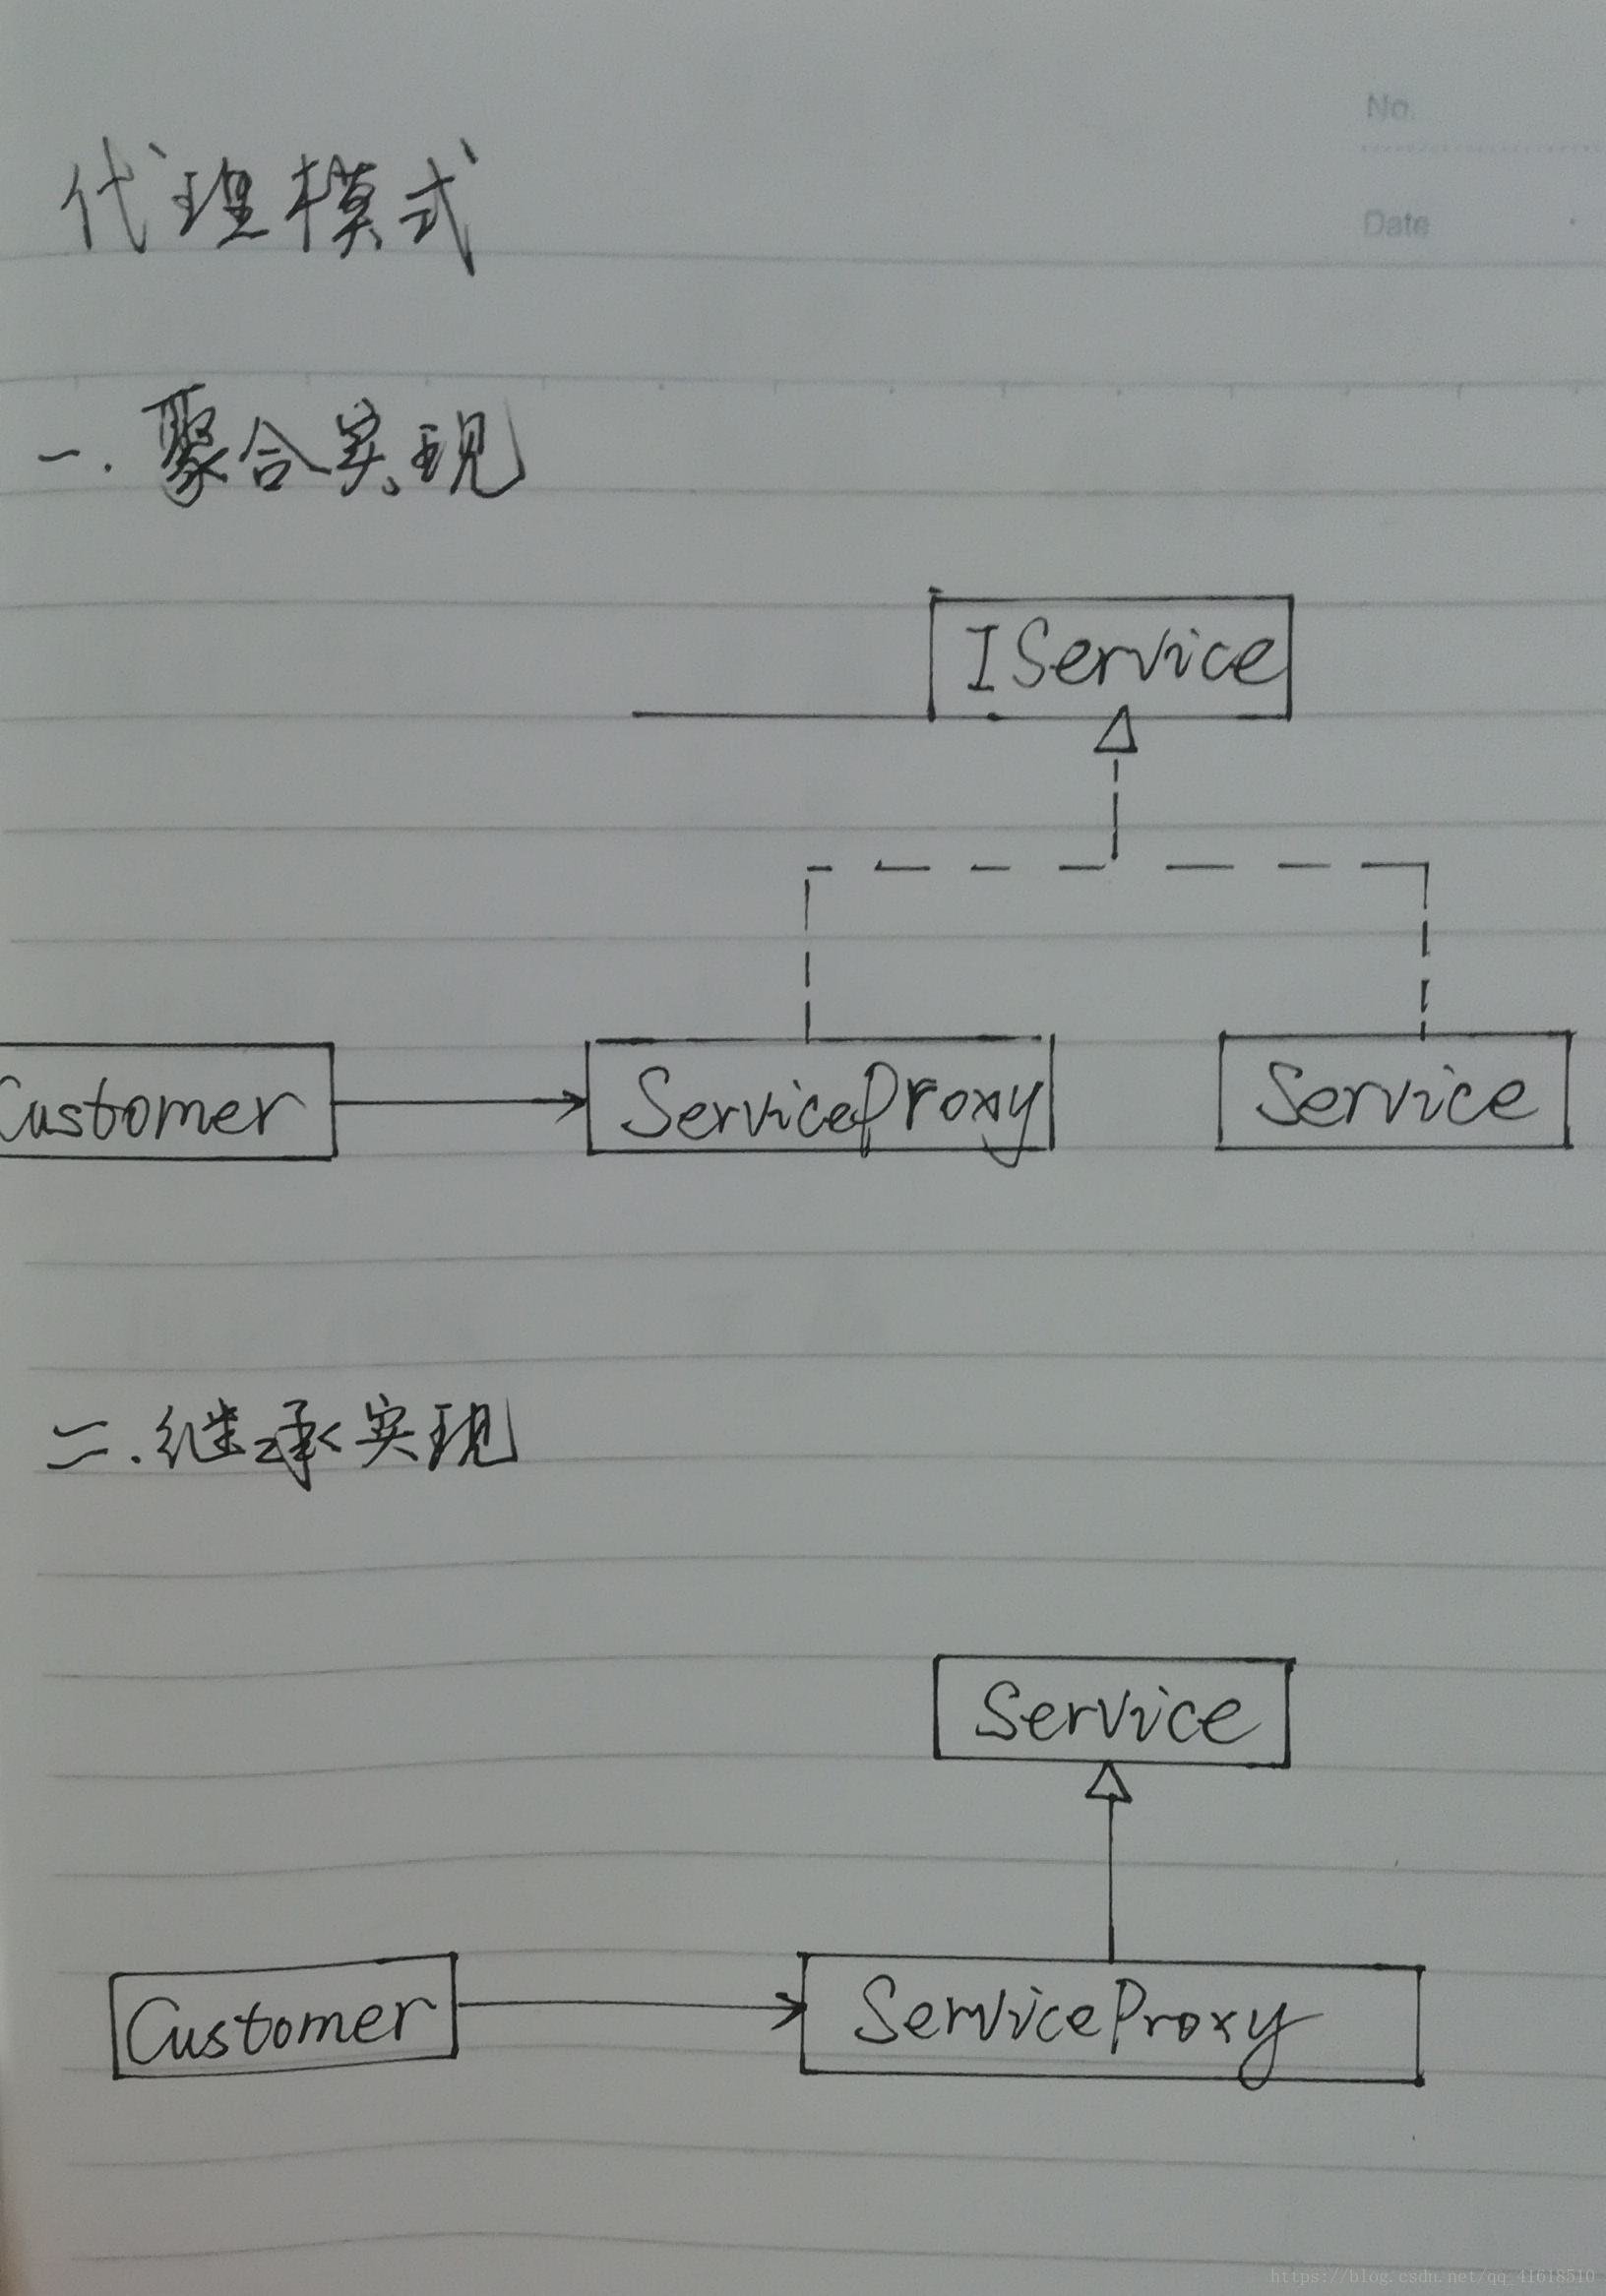 No.
Date
代理模式
一.聚合实现
IService
Customer
ServiceProxy
Service
二.继承实现
Service
Customer
ServiceProxy
https://blog.csdn.net/qq_41618510